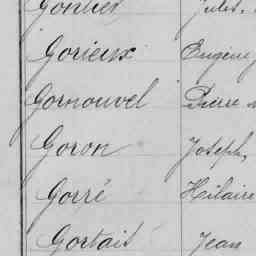 Gontier Jules
Gorieux Eugène
Gornouvel Pierre
Goron Joseph,
Gorré Hilaire
Gortais Jean